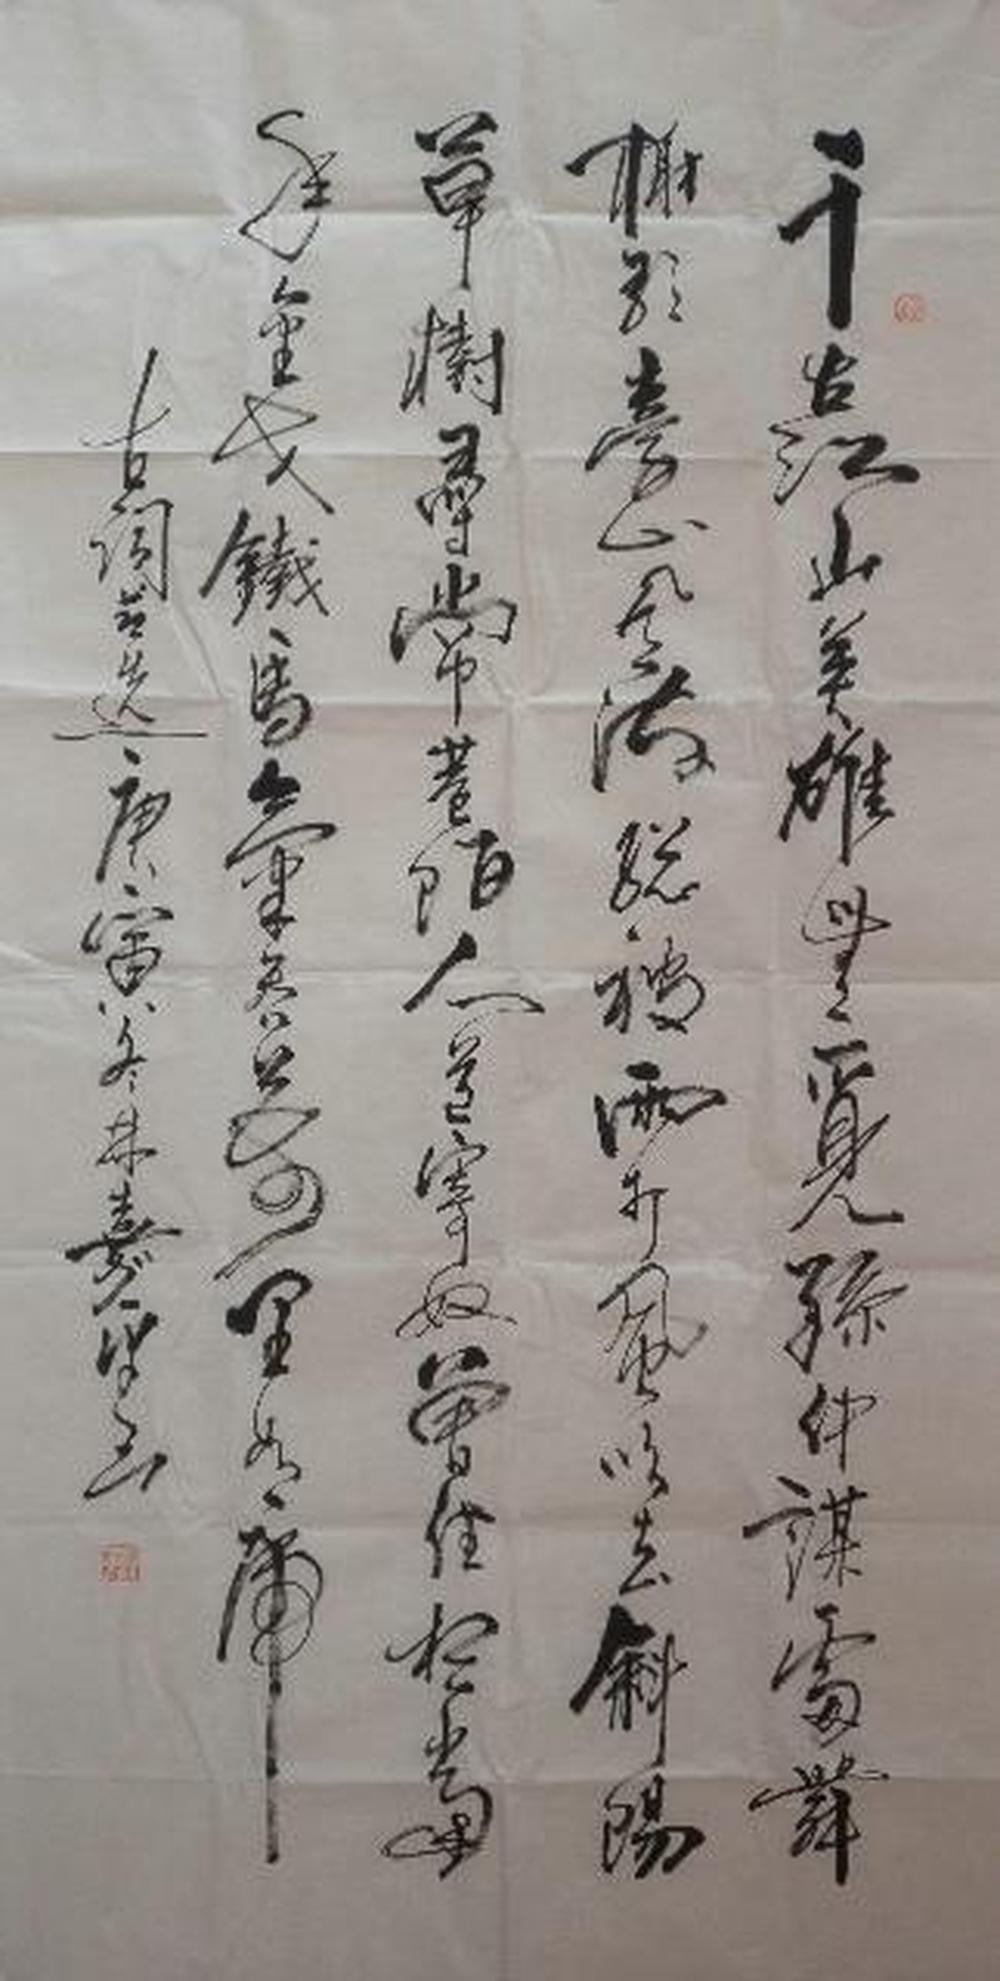 千古江山英雄無覓孫仲謀處舞
榭歌臺風流總被雨打風吹去斜陽
草樹尋常巷陌人道寄奴曾住想當
年金戈鐵馬氣吞萬里如虎
古詞節選庚寅冬林嘉書